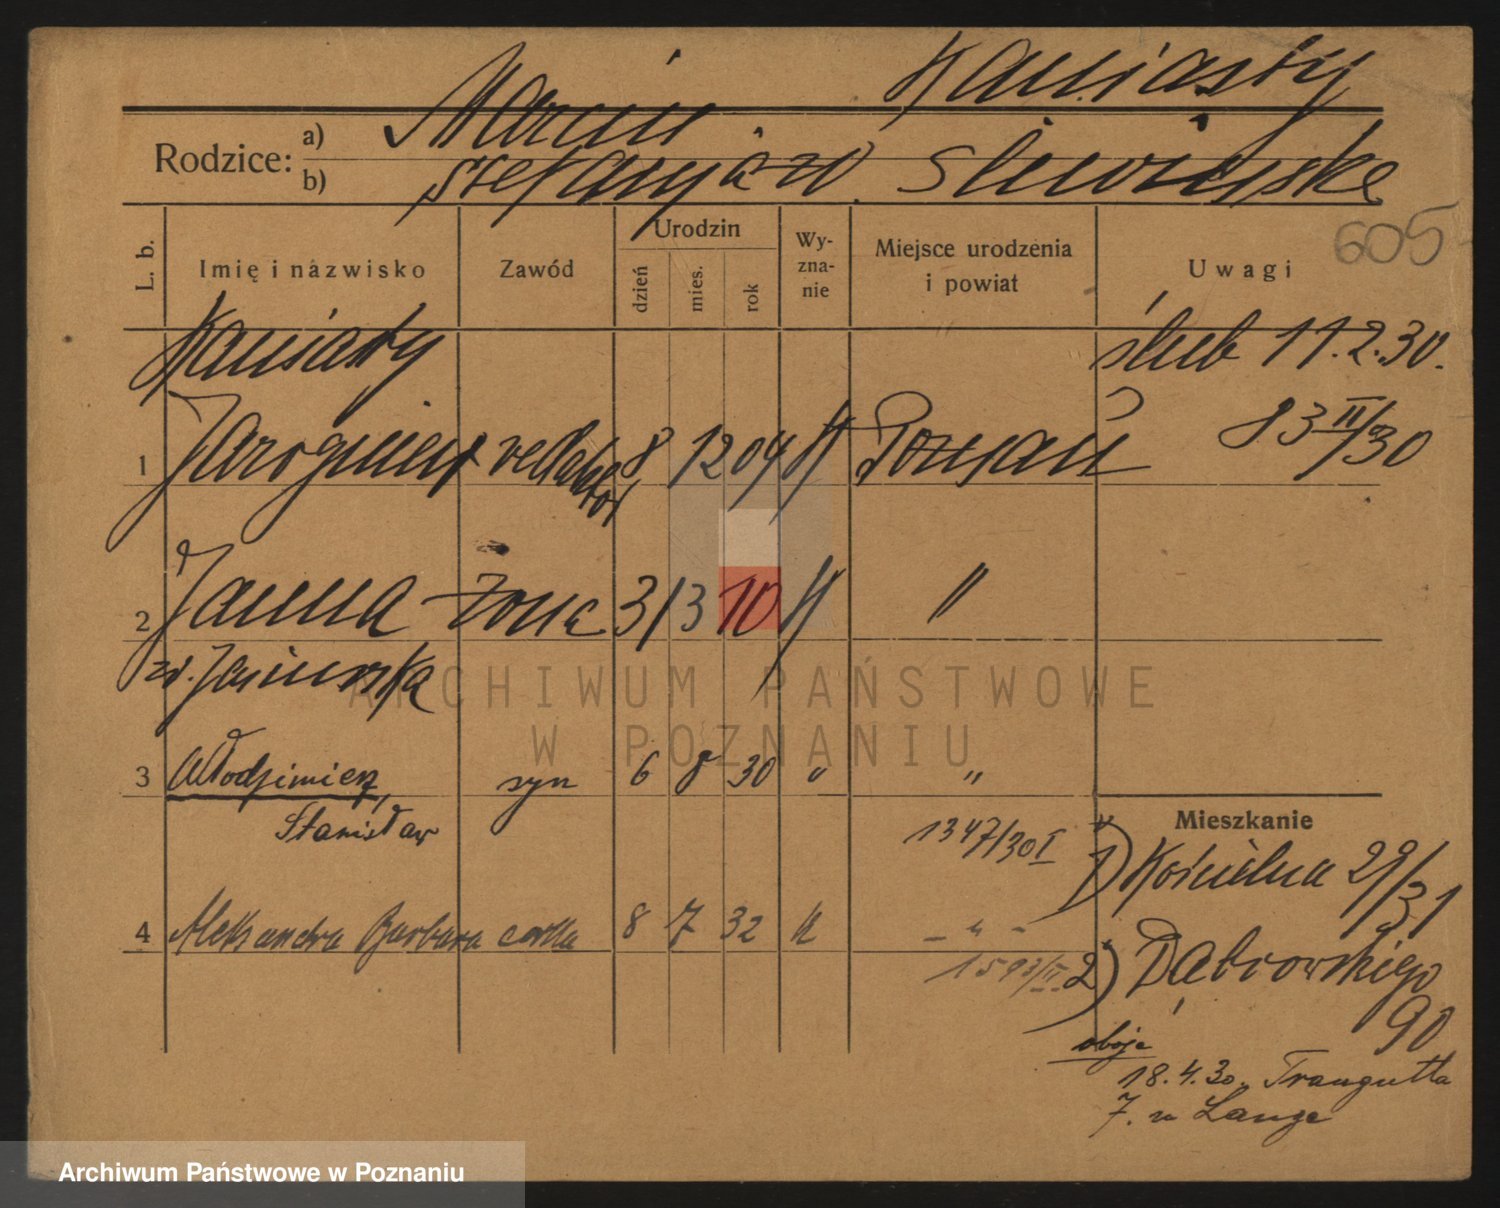 Kaniasty
Rodzice: a) Marcin
b) Stefanja zd. Śliwińska
605
L. b. Imię i nazwisko Zawód Urodzin dzień mies. rok Wyznanie Miejsce urodzenia i powiat Uwagi
Kaniasty ślub 11.2.30.
83 II/30
1 Jarogniew redaktor 8 12 04 K Poznań
2 Janina żona 3 3 10 K "
zd.
3 Włodzimierz, syn 6 8 30 " "
Stanisław
1347/30 I
Mieszkanie
1) Kościelna 29/31
4 Aleksandra Barbara córka 8 7 32 K - " -
1593/II
2) Dąbrowskiego
90
oboje
18.4.30. Traugutta
7. u Lange
ARCHIWUM PAŃSTWOWE
W POZNANIU
Archiwum Państwowe w Poznaniu